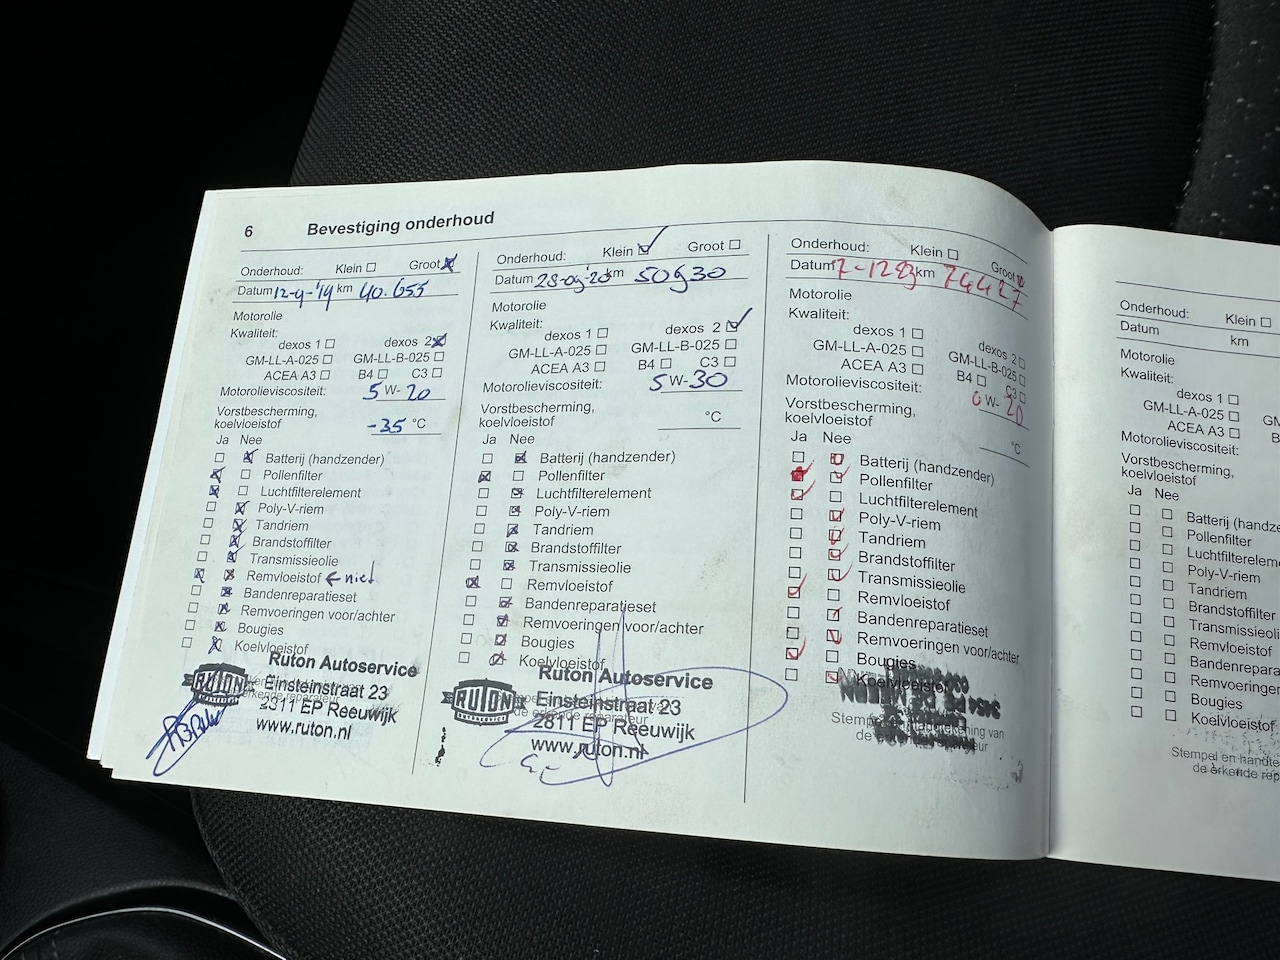 6 Bevestiging onderhoud
Onderhoud: Klein Groot
Datum 12-9-'19 km 40.655
Motorolie
Kwaliteit:
dexos 1 dexos 2
GM-LL-A-025 GM-LL-B-025
ACEA A3 B4 C3
Motorolieviscositeit: 5 W-20
Vorstbescherming,
koelvloeistof -35 °C
Ja Nee
Batterij (handzender)
Pollenfilter
Luchtfilterelement
Poly-V-riem
Tandriem
Brandstoffilter
Transmissieolie
Remvloeistof ← niet
Bandenreparatieset
Remvoeringen voor/achter
Bougies
Koelvloeistof
RUTON
AUTOSERVICE
Ruton Autoservice
Einsteinstraat 23
2811 EP Reeuwijk
www.ruton.nl
Onderhoud: Klein Groot
Datum 28-09-'20 km 50930
Motorolie
Kwaliteit:
dexos 1 dexos 2
GM-LL-A-025 GM-LL-B-025
ACEA A3 B4 C3
Motorolieviscositeit: 5 W-30
Vorstbescherming,
koelvloeistof °C
Ja Nee
Batterij (handzender)
Pollenfilter
Luchtfilterelement
Poly-V-riem
Tandriem
Brandstoffilter
Transmissieolie
Remvloeistof
Bandenreparatieset
Remvoeringen voor/achter
Bougies
Koelvloeistof
RUTON
AUTOSERVICE
Ruton Autoservice
Einsteinstraat 23
2811 EP Reeuwijk
www.ruton.nl
Onderhoud: Klein Groot
Datum 7-12 23 km 74427
Motorolie
Kwaliteit:
dexos 1 dexos 2
GM-LL-A-025 GM-LL-B-025
ACEA A3 B4 C3
Motorolieviscositeit: 0 W-20
Vorstbescherming,
koelvloeistof °C
Ja Nee
Batterij (handzender)
Pollenfilter
Luchtfilterelement
Poly-V-riem
Tandriem
Brandstoffilter
Transmissieolie
Remvloeistof
Bandenreparatieset
Remvoeringen voor/achter
Bougies
Koelvloeistof
Onderhoud: Klein
Datum km
Motorolie
Kwaliteit:
dexos 1
GM-LL-A-025
ACEA A3
Motorolieviscositeit:
Vorstbescherming,
koelvloeistof
Ja Nee
Batterij
Pollenfilter
Poly-V-riem
Tandriem
Brandstoffilter
Remvloeistof
Remvoeringen
Bougies
Koelvloeistof
Stempel en
de erkende